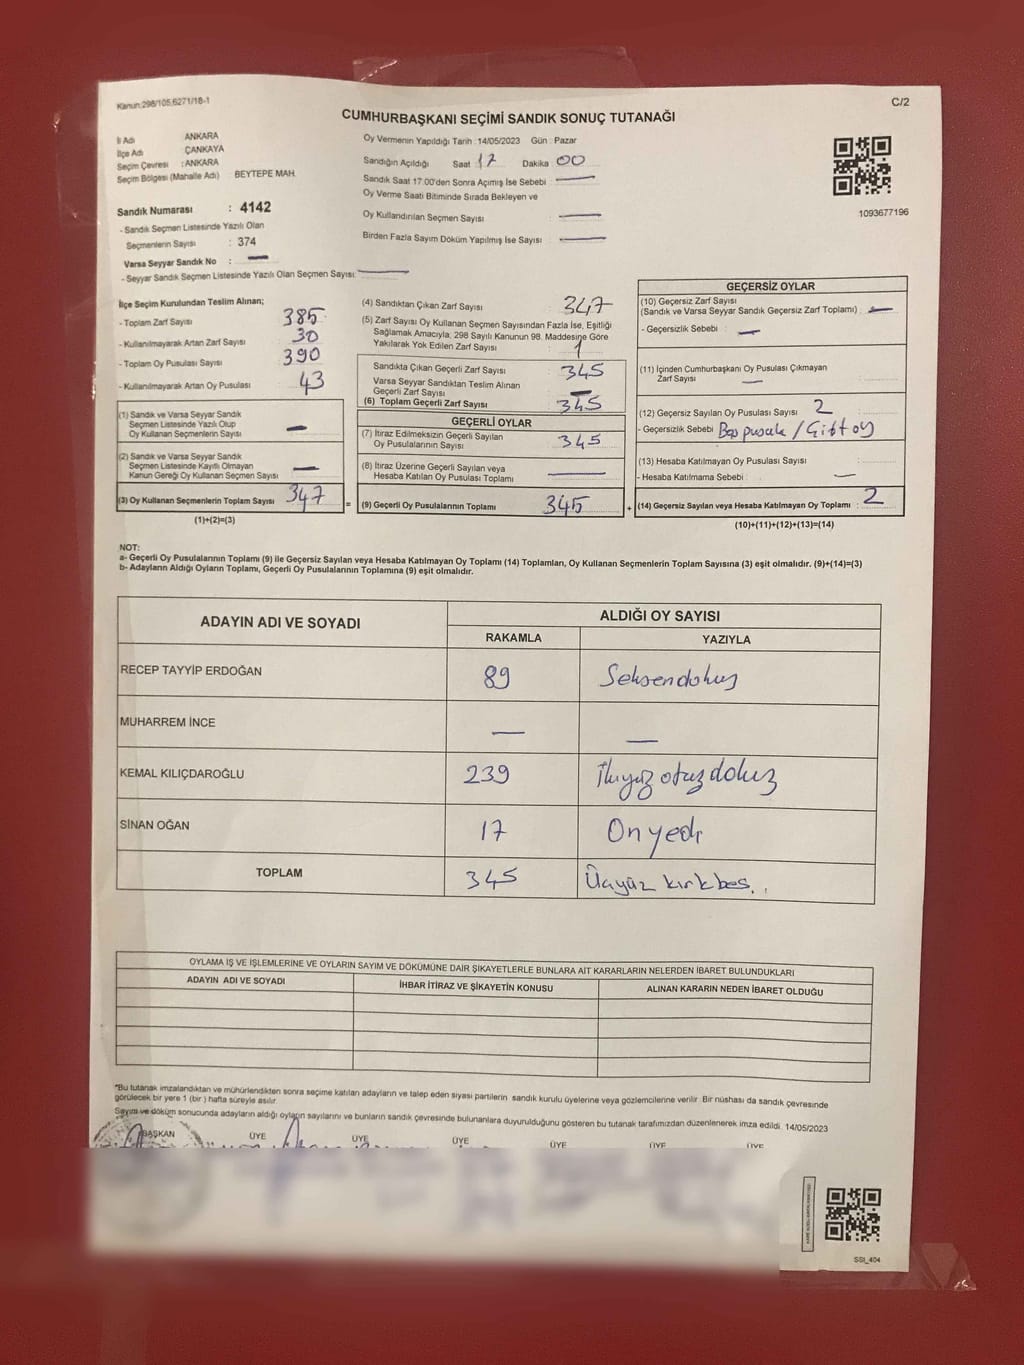 Kanun:298/105,6271/18-1
C/2
CUMHURBAŞKANI SEÇİMİ SANDIK SONUÇ TUTANAĞI
İl Adı ANKARA
İlçe Adı ÇANKAYA
Seçim Çevresi : ANKARA
Seçim Bölgesi (Mahalle Adı) BEYTEPE MAH.
Sandık Numarası : 4142
- Sandık Seçmen Listesinde Yazılı Olan
Seçmenlerin Sayısı : 374
Varsa Seyyar Sandık No : —
- Seyyar Sandık Seçmen Listesinde Yazılı Olan Seçmen Sayısı: —
Oy Vermenin Yapıldığı Tarih : 14/05/2023 Gün : Pazar
Sandığın Açıldığı Saat 17 Dakika 00
Sandık Saat 17.00'den Sonra Açımış İse Sebebi : —
Oy Verme Saati Bitiminde Sırada Bekleyen ve
Oy Kullandırılan Seçmen Sayısı : —
Birden Fazla Sayım Döküm Yapılmış İse Sayısı : —
1093677196
İlçe Seçim Kurulundan Teslim Alınan;
- Toplam Zarf Sayısı : 385
- Kullanılmayarak Artan Zarf Sayısı : 30
- Toplam Oy Pusulası Sayısı : 390
- Kullanılmayarak Artan Oy Pusulası : 43
(1) Sandık ve Varsa Seyyar Sandık
Seçmen Listesinde Yazılı Olup
Oy Kullanan Seçmenlerin Sayısı —
(2) Sandık ve Varsa Seyyar Sandık
Seçmen Listesinde Kayıtlı Olmayan
Kanun Gereği Oy Kullanan Seçmen Sayısı —
(3) Oy Kullanan Seçmenlerin Toplam Sayısı 347
(1)+(2)=(3)
=
(4) Sandıktan Çıkan Zarf Sayısı 347
(5) Zarf Sayısı Oy Kullanan Seçmen Sayısından Fazla İse, Eşitliği
Sağlamak Amacıyla, 298 Sayılı Kanunun 98. Maddesine Göre
Yakılarak Yok Edilen Zarf Sayısı : 1
Sandıkta Çıkan Geçerli Zarf Sayısı : 345
Varsa Seyyar Sandıktan Teslim Alınan
Geçerli Zarf Sayısı : —
(6) Toplam Geçerli Zarf Sayısı : 345
GEÇERLİ OYLAR
(7) İtiraz Edilmeksizin Geçerli Sayılan
Oy Pusulalarının Sayısı : 345
(8) İtiraz Üzerine Geçerli Sayılan veya
Hesaba Katılan Oy Pusulası Toplamı —
(9) Geçerli Oy Pusulalarının Toplamı 345
+
GEÇERSİZ OYLAR
(10) Geçersiz Zarf Sayısı
(Sandık ve Varsa Seyyar Sandık Geçersiz Zarf Toplamı) : —
- Geçersizlik Sebebi : —
(11) İçinden Cumhurbaşkanı Oy Pusulası Çıkmayan
Zarf Sayısı —
(12) Geçersiz Sayılan Oy Pusulası Sayısı 2
- Geçersizlik Sebebi : Boş pusula / Çift oy
(13) Hesaba Katılmayan Oy Pusulası Sayısı
- Hesaba Katılmama Sebebi : —
(14) Geçersiz Sayılan veya Hesaba Katılmayan Oy Toplamı : 2
(10)+(11)+(12)+(13)=(14)
NOT:
a- Geçerli Oy Pusulalarının Toplamı (9) ile Geçersiz Sayılan veya Hesaba Katılmayan Oy Toplamı (14) Toplamları, Oy Kullanan Seçmenlerin Toplam Sayısına (3) eşit olmalıdır. (9)+(14)=(3)
b- Adayların Aldığı Oyların Toplamı, Geçerli Oy Pusulalarının Toplamına (9) eşit olmalıdır.
ADAYIN ADI VE SOYADI ALDIĞI OY SAYISI
RAKAMLA YAZIYLA
RECEP TAYYİP ERDOĞAN 89 Seksendokuz
MUHARREM İNCE — —
KEMAL KILIÇDAROĞLU 239 İkiyüz otuz dokuz
SİNAN OĞAN 17 On yedi
TOPLAM 345 Üçyüz kırkbeş.
OYLAMA İŞ VE İŞLEMLERİNE VE OYLARIN SAYIM VE DÖKÜMÜNE DAİR ŞİKAYETLERLE BUNLARA AİT KARARLARIN NELERDEN İBARET BULUNDUKLARI
ADAYIN ADI VE SOYADI İHBAR İTİRAZ VE ŞİKAYETİN KONUSU ALINAN KARARIN NEDEN İBARET OLDUĞU
*Bu tutanak imzalandıktan ve mühürlendikten sonra seçime katılan adayların ve talep eden siyasi partilerin sandık kurulu üyelerine veya gözlemcilerine verilir. Bir nüshası da sandık çevresinde
görülecek bir yere 1 (bir ) hafta süreyle asılır.
Sayım ve döküm sonucunda adayların aldığı oyların sayılarını ve bunların sandık çevresinde bulunanlara duyurulduğunu gösteren bu tutanak tarafımızdan düzenlenerek imza edildi. 14/05/2023
BAŞKAN ÜYE ÜYE ÜYE ÜYE ÜYE ÜYE
SSI_404